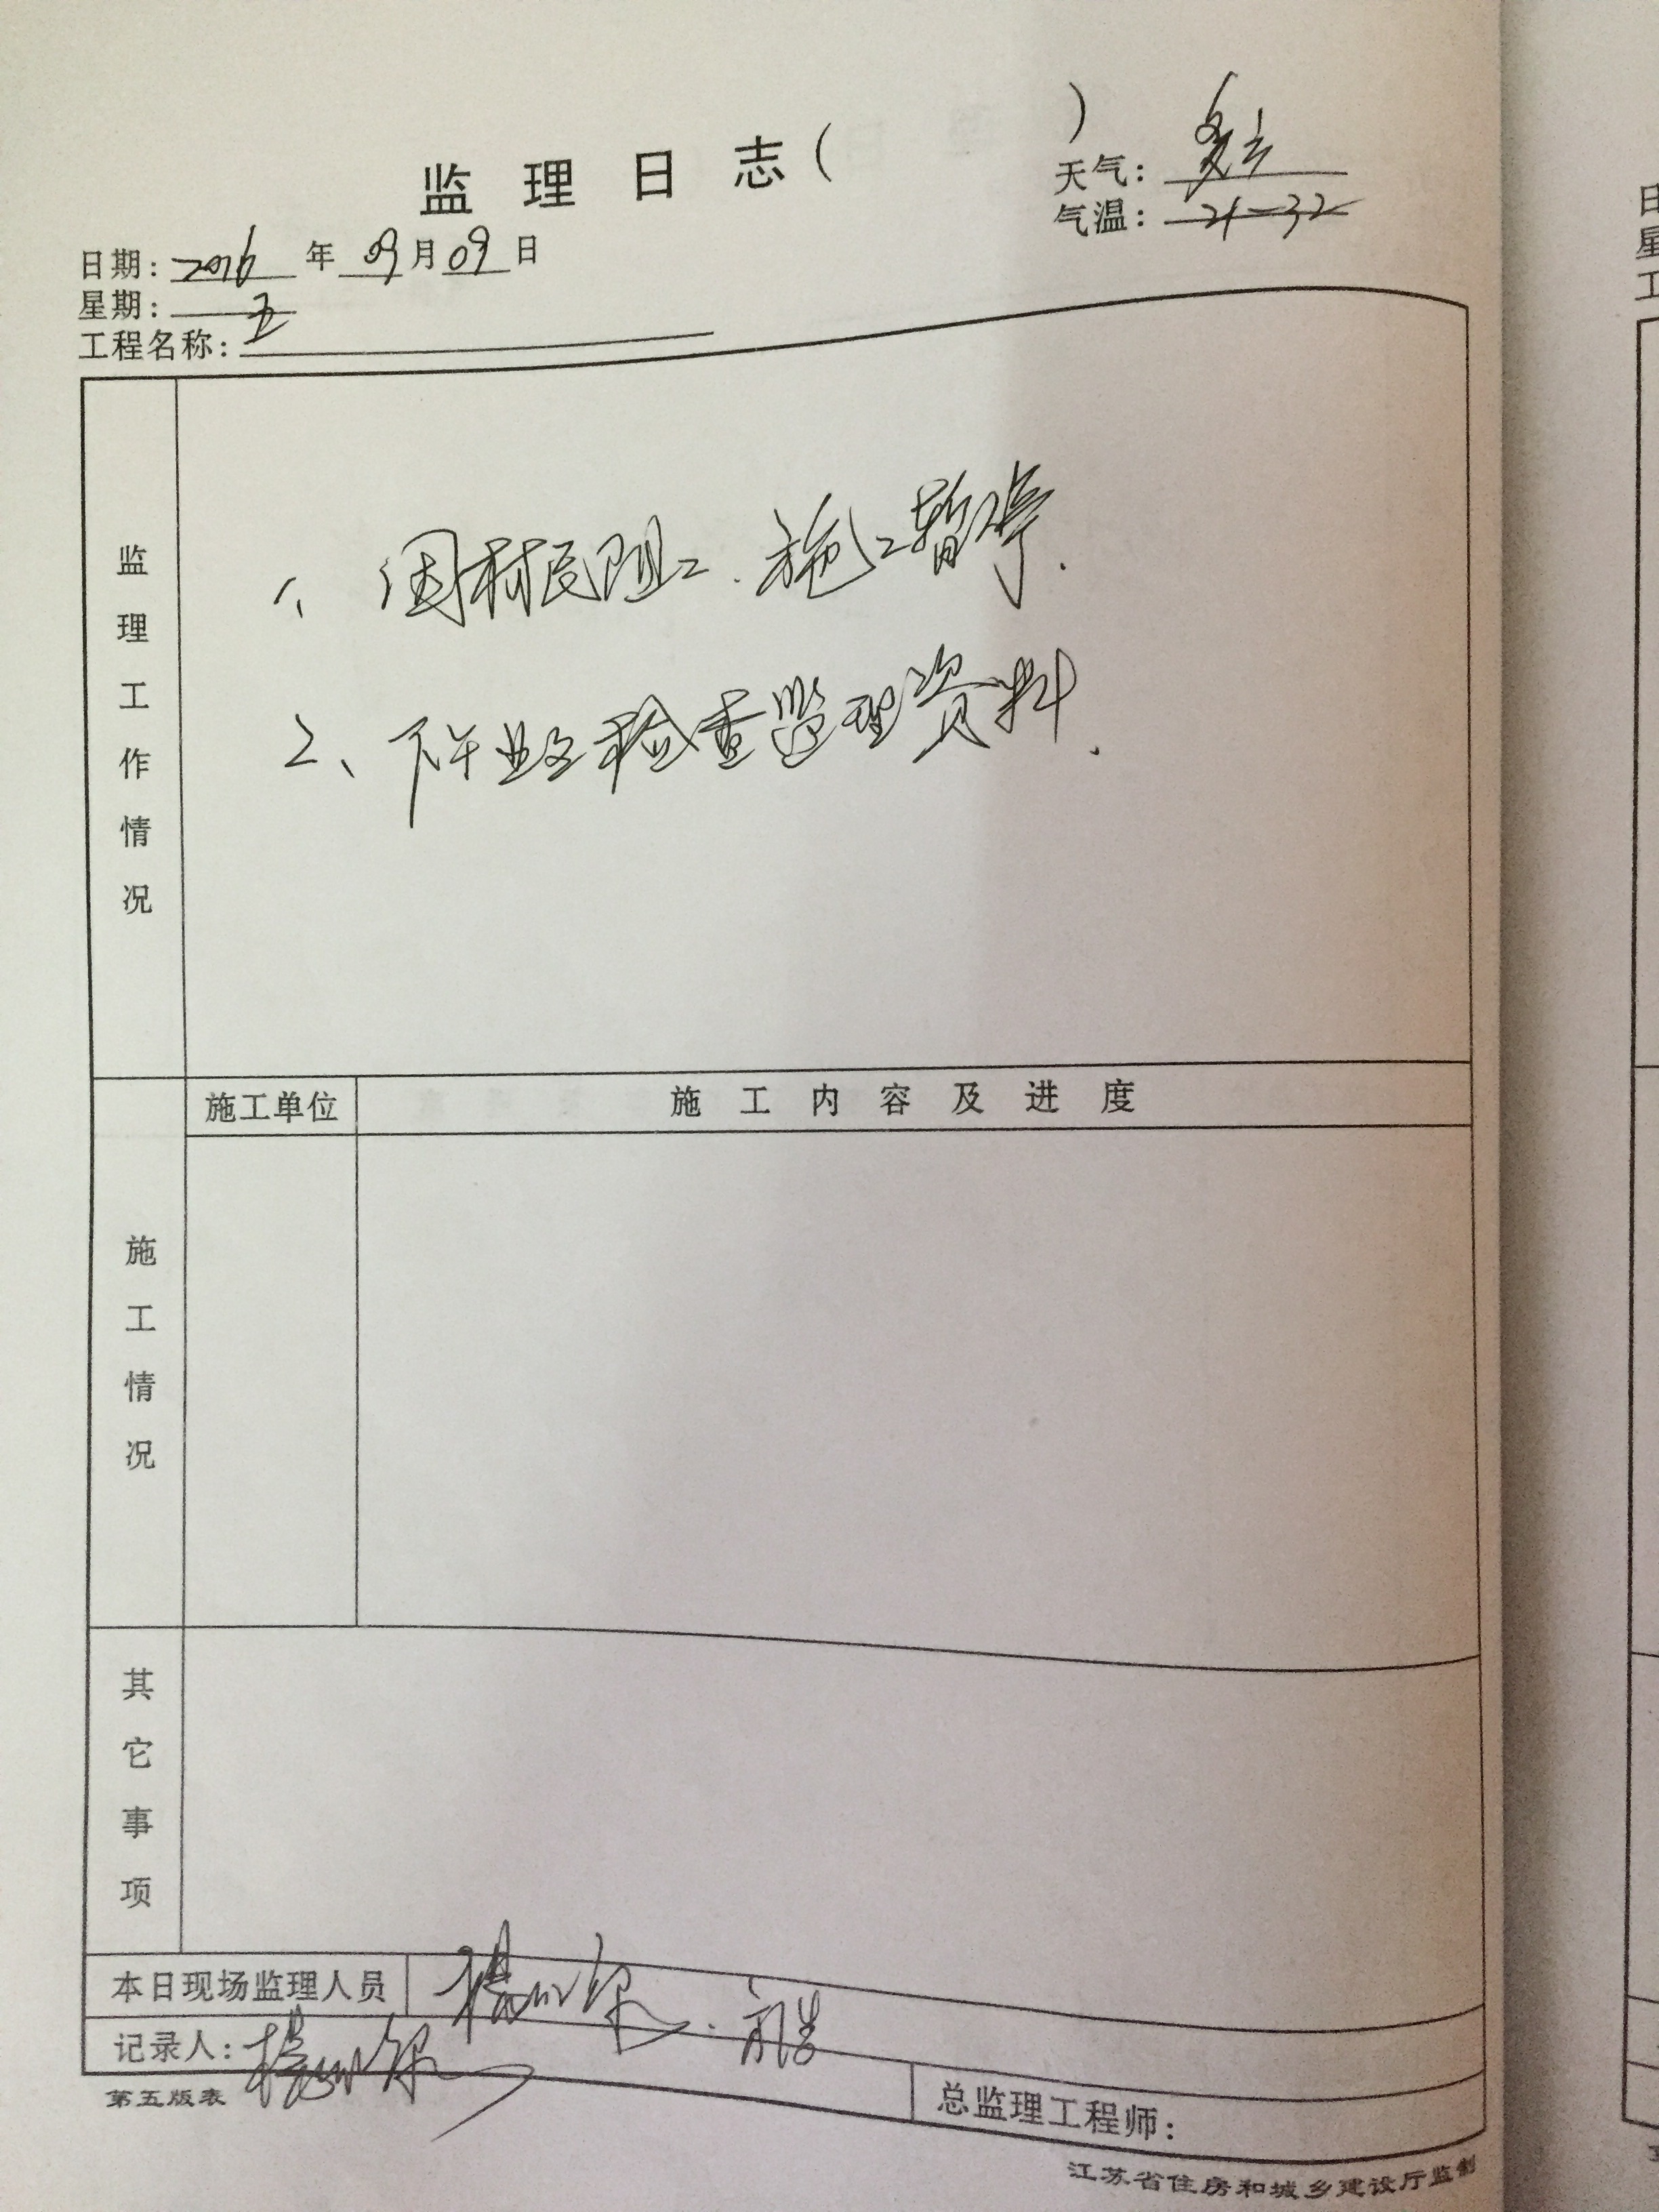 监理日志( )
天气: 多云
气温: 21-32
日期: 2016 年 09 月 09 日
星期: 五
工程名称:
监理工作情况
1、因村民阻工.施工暂停.
2、下午业主检查监理资料.
施工单位
施工内容及进度
施工情况
其它事项
本日现场监理人员
记录人:
总监理工程师:
第五版表
江苏省住房和城乡建设厅监制